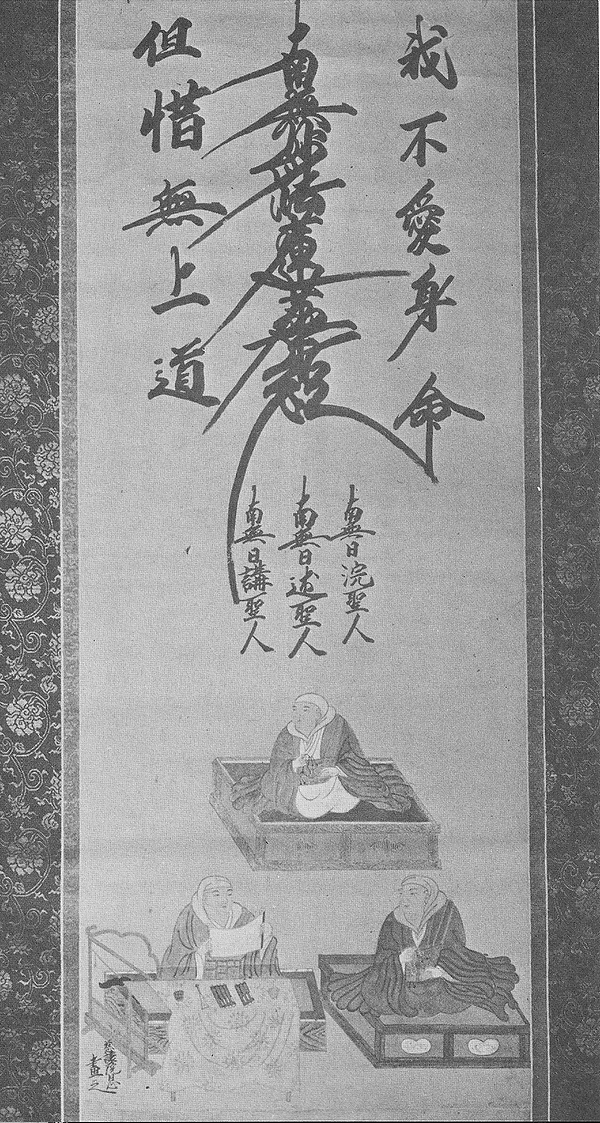 我不愛身命
南無妙法蓮華經
但惜無上道
南無日浣聖人
南無日述聖人
南無日講聖人
畫之